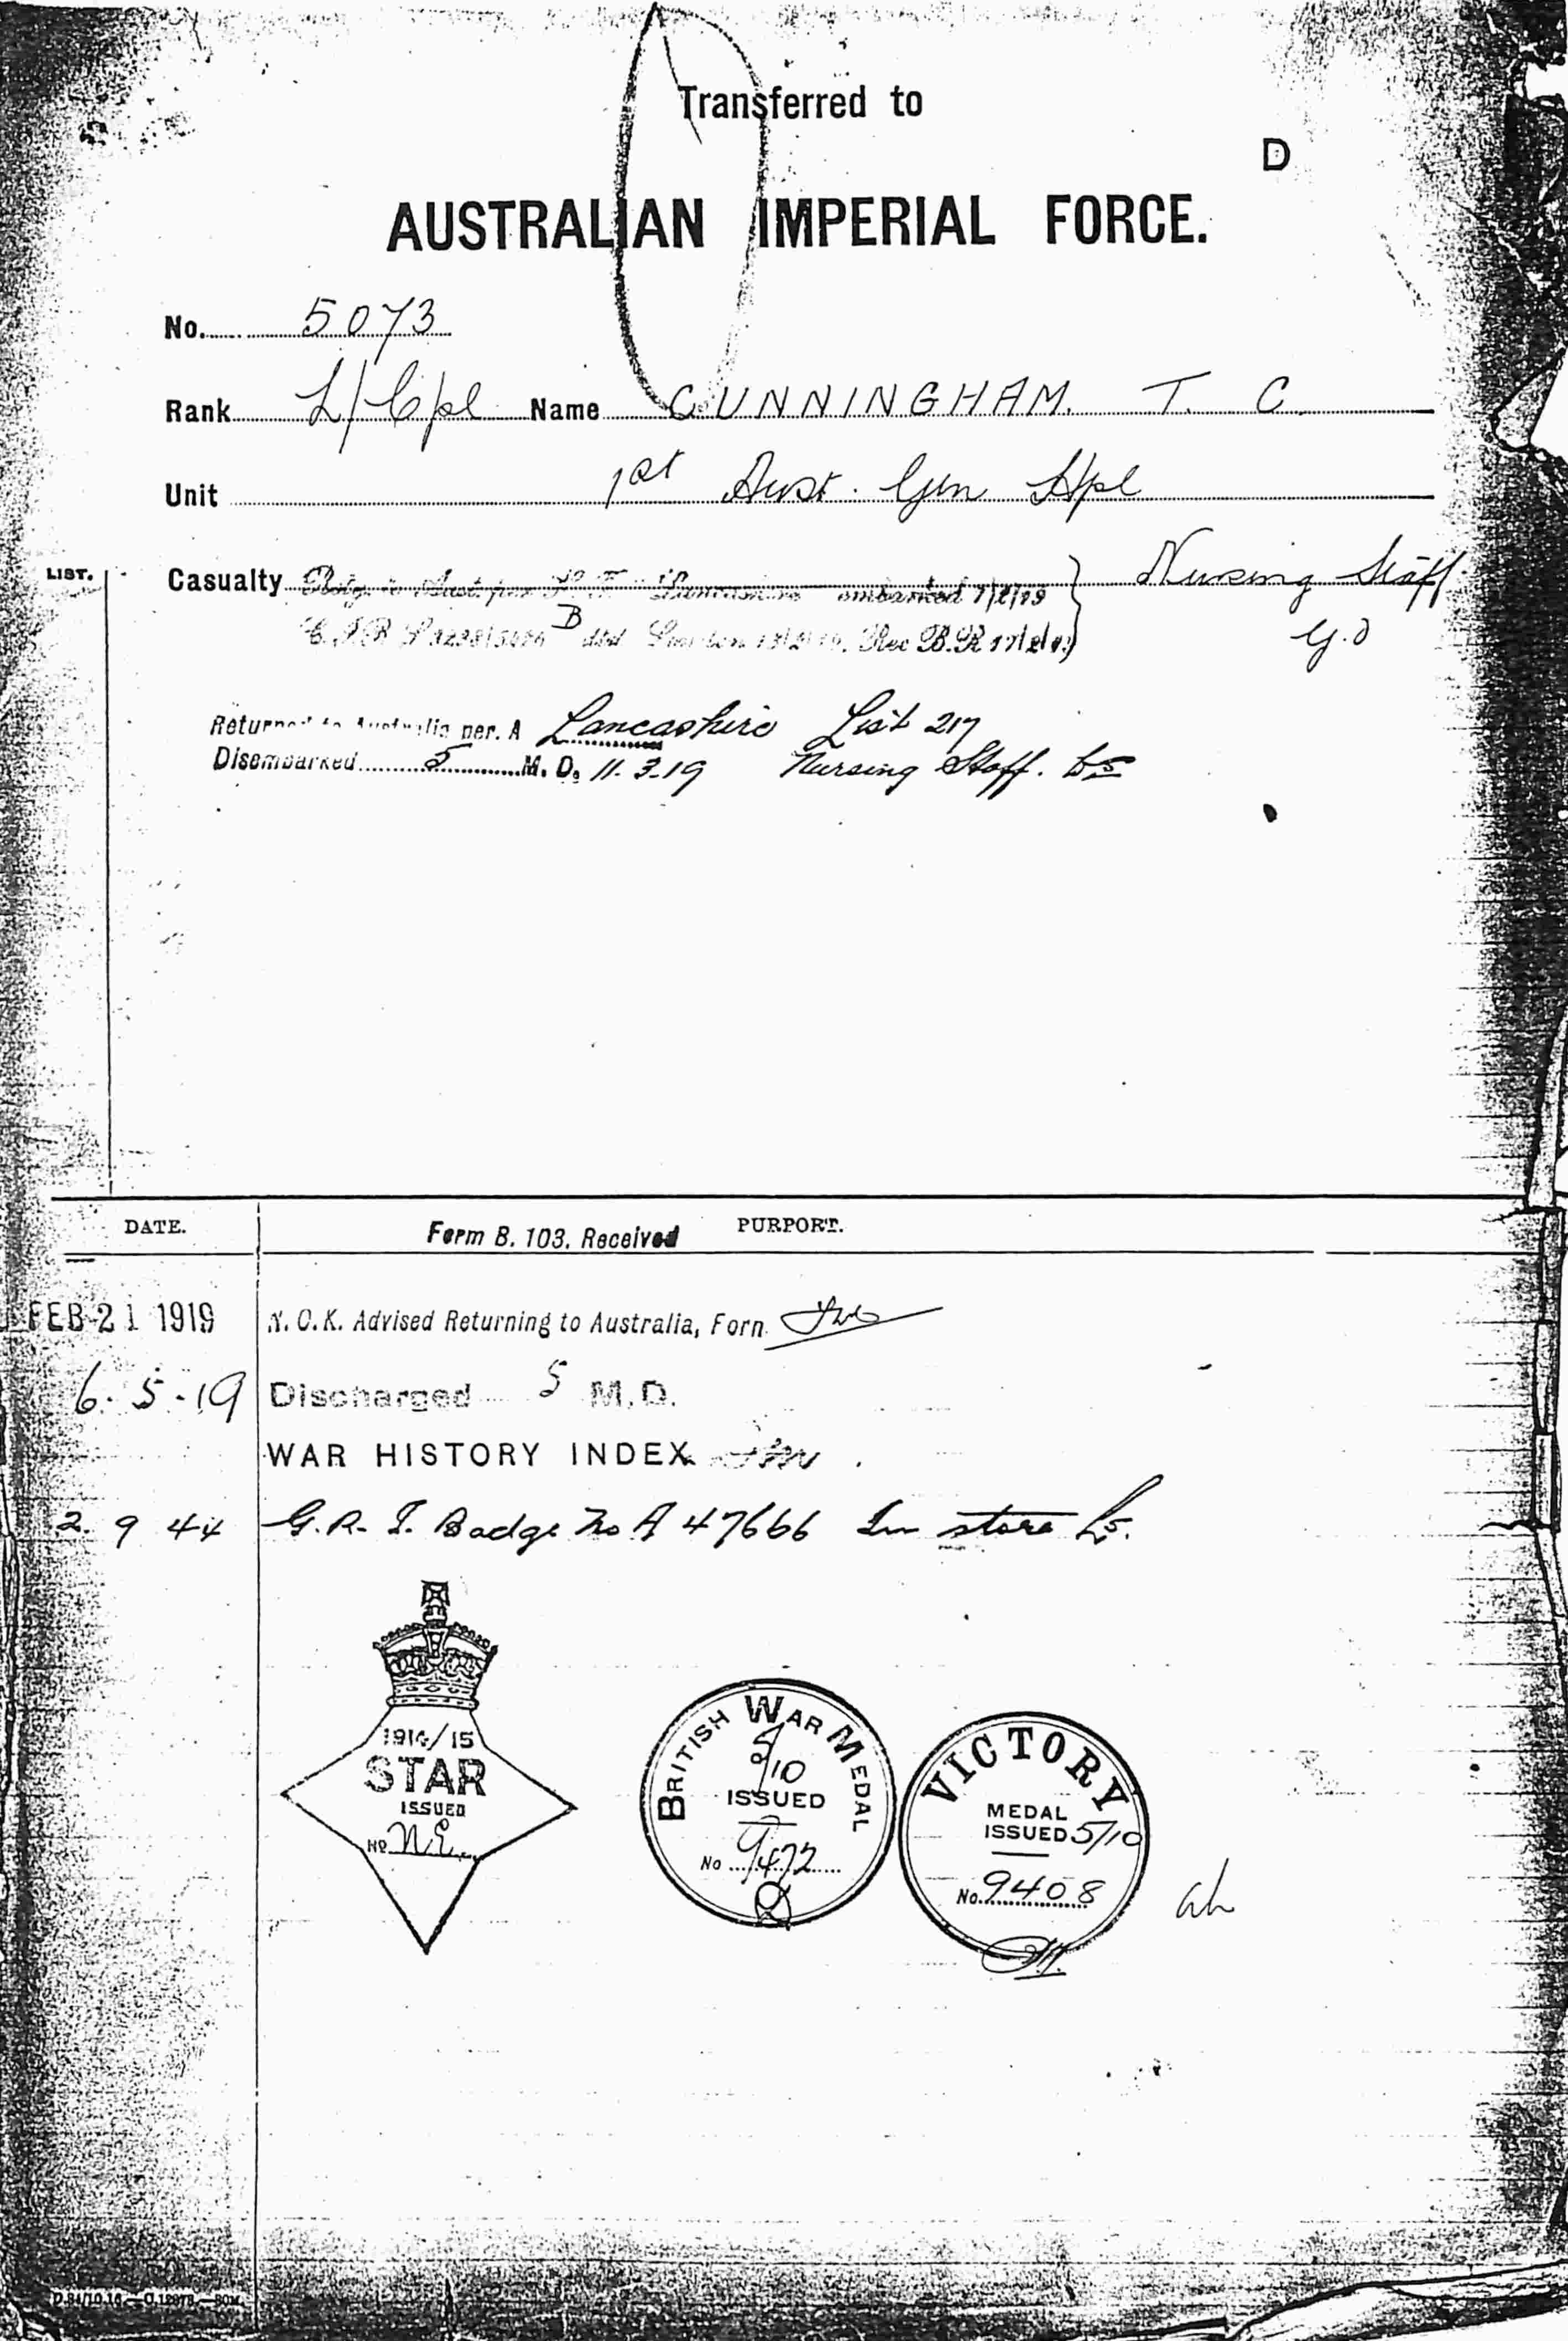 Transferred to
D
AUSTRALIAN IMPERIAL FORCE.
No. 5073
Rank L/Cpl Name CUNNINGHAM. T. C.
Unit 1st Aust. Gen Hpl
LIST.
Casualty embarked Nursing Staff
B dtd Rec B.R
Returned to Australia per. A Lancashire List 217
Disembarked 5 M. D. 11. 3.19 Nursing Staff.
DATE.
Form B. 103. Received
PURPORT.
FEB 21 1919 N. O. K. Advised Returning to Australia, Form
6. 5. 19 Discharged 5 M.D.
WAR HISTORY INDEX
2. 9 44 Badge No A 47666 In store
1914/15
STAR
ISSUED
No N.E.
BRITISH WAR MEDAL
5/10
ISSUED
No 9472
VICTORY
MEDAL
ISSUED 5/10
No. 9408